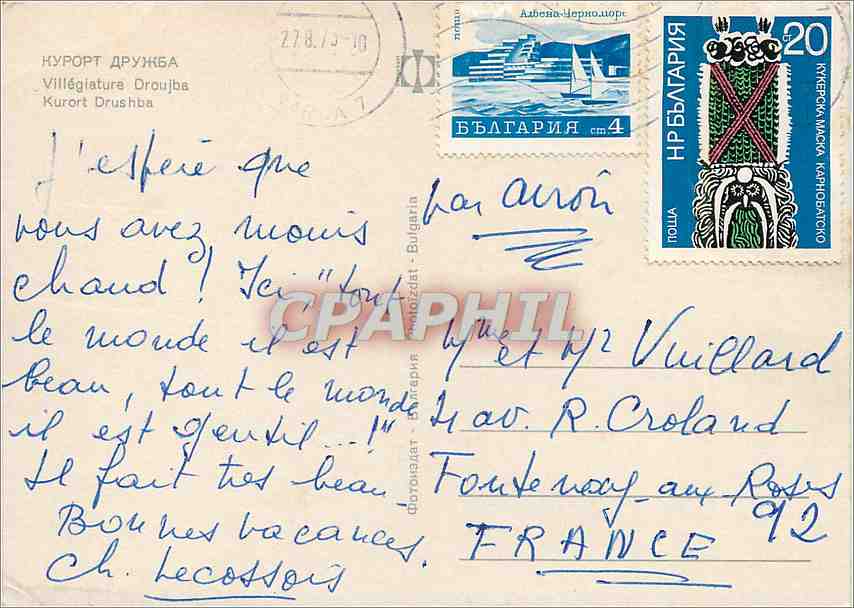 КУРОРТ ДРУЖБА
Villégiature Droujba
Kurort Drushba
27.8.73-10
Албена-Черноморс
БЪЛГАРИЯ ст. 4
20 ст
НР БЪЛГАРИЯ
ПОЩА
КУКЕРСКА МАСКА КАРНОБАТСКО
J'espère que
vous avez moins
chaud ! Ici, "tout
le monde il est
beau, tout le monde
il est gentil...!"
Il fait très beau.
Bonnes vacances.
Ch. Lecossois
Фотоиздат - България - Photoizdat - Bulgaria
par avion
Mme et Mr Vuillard
av. R. Croland
Fontenay-aux-Roses
92
FRANCE
CPAPHIL